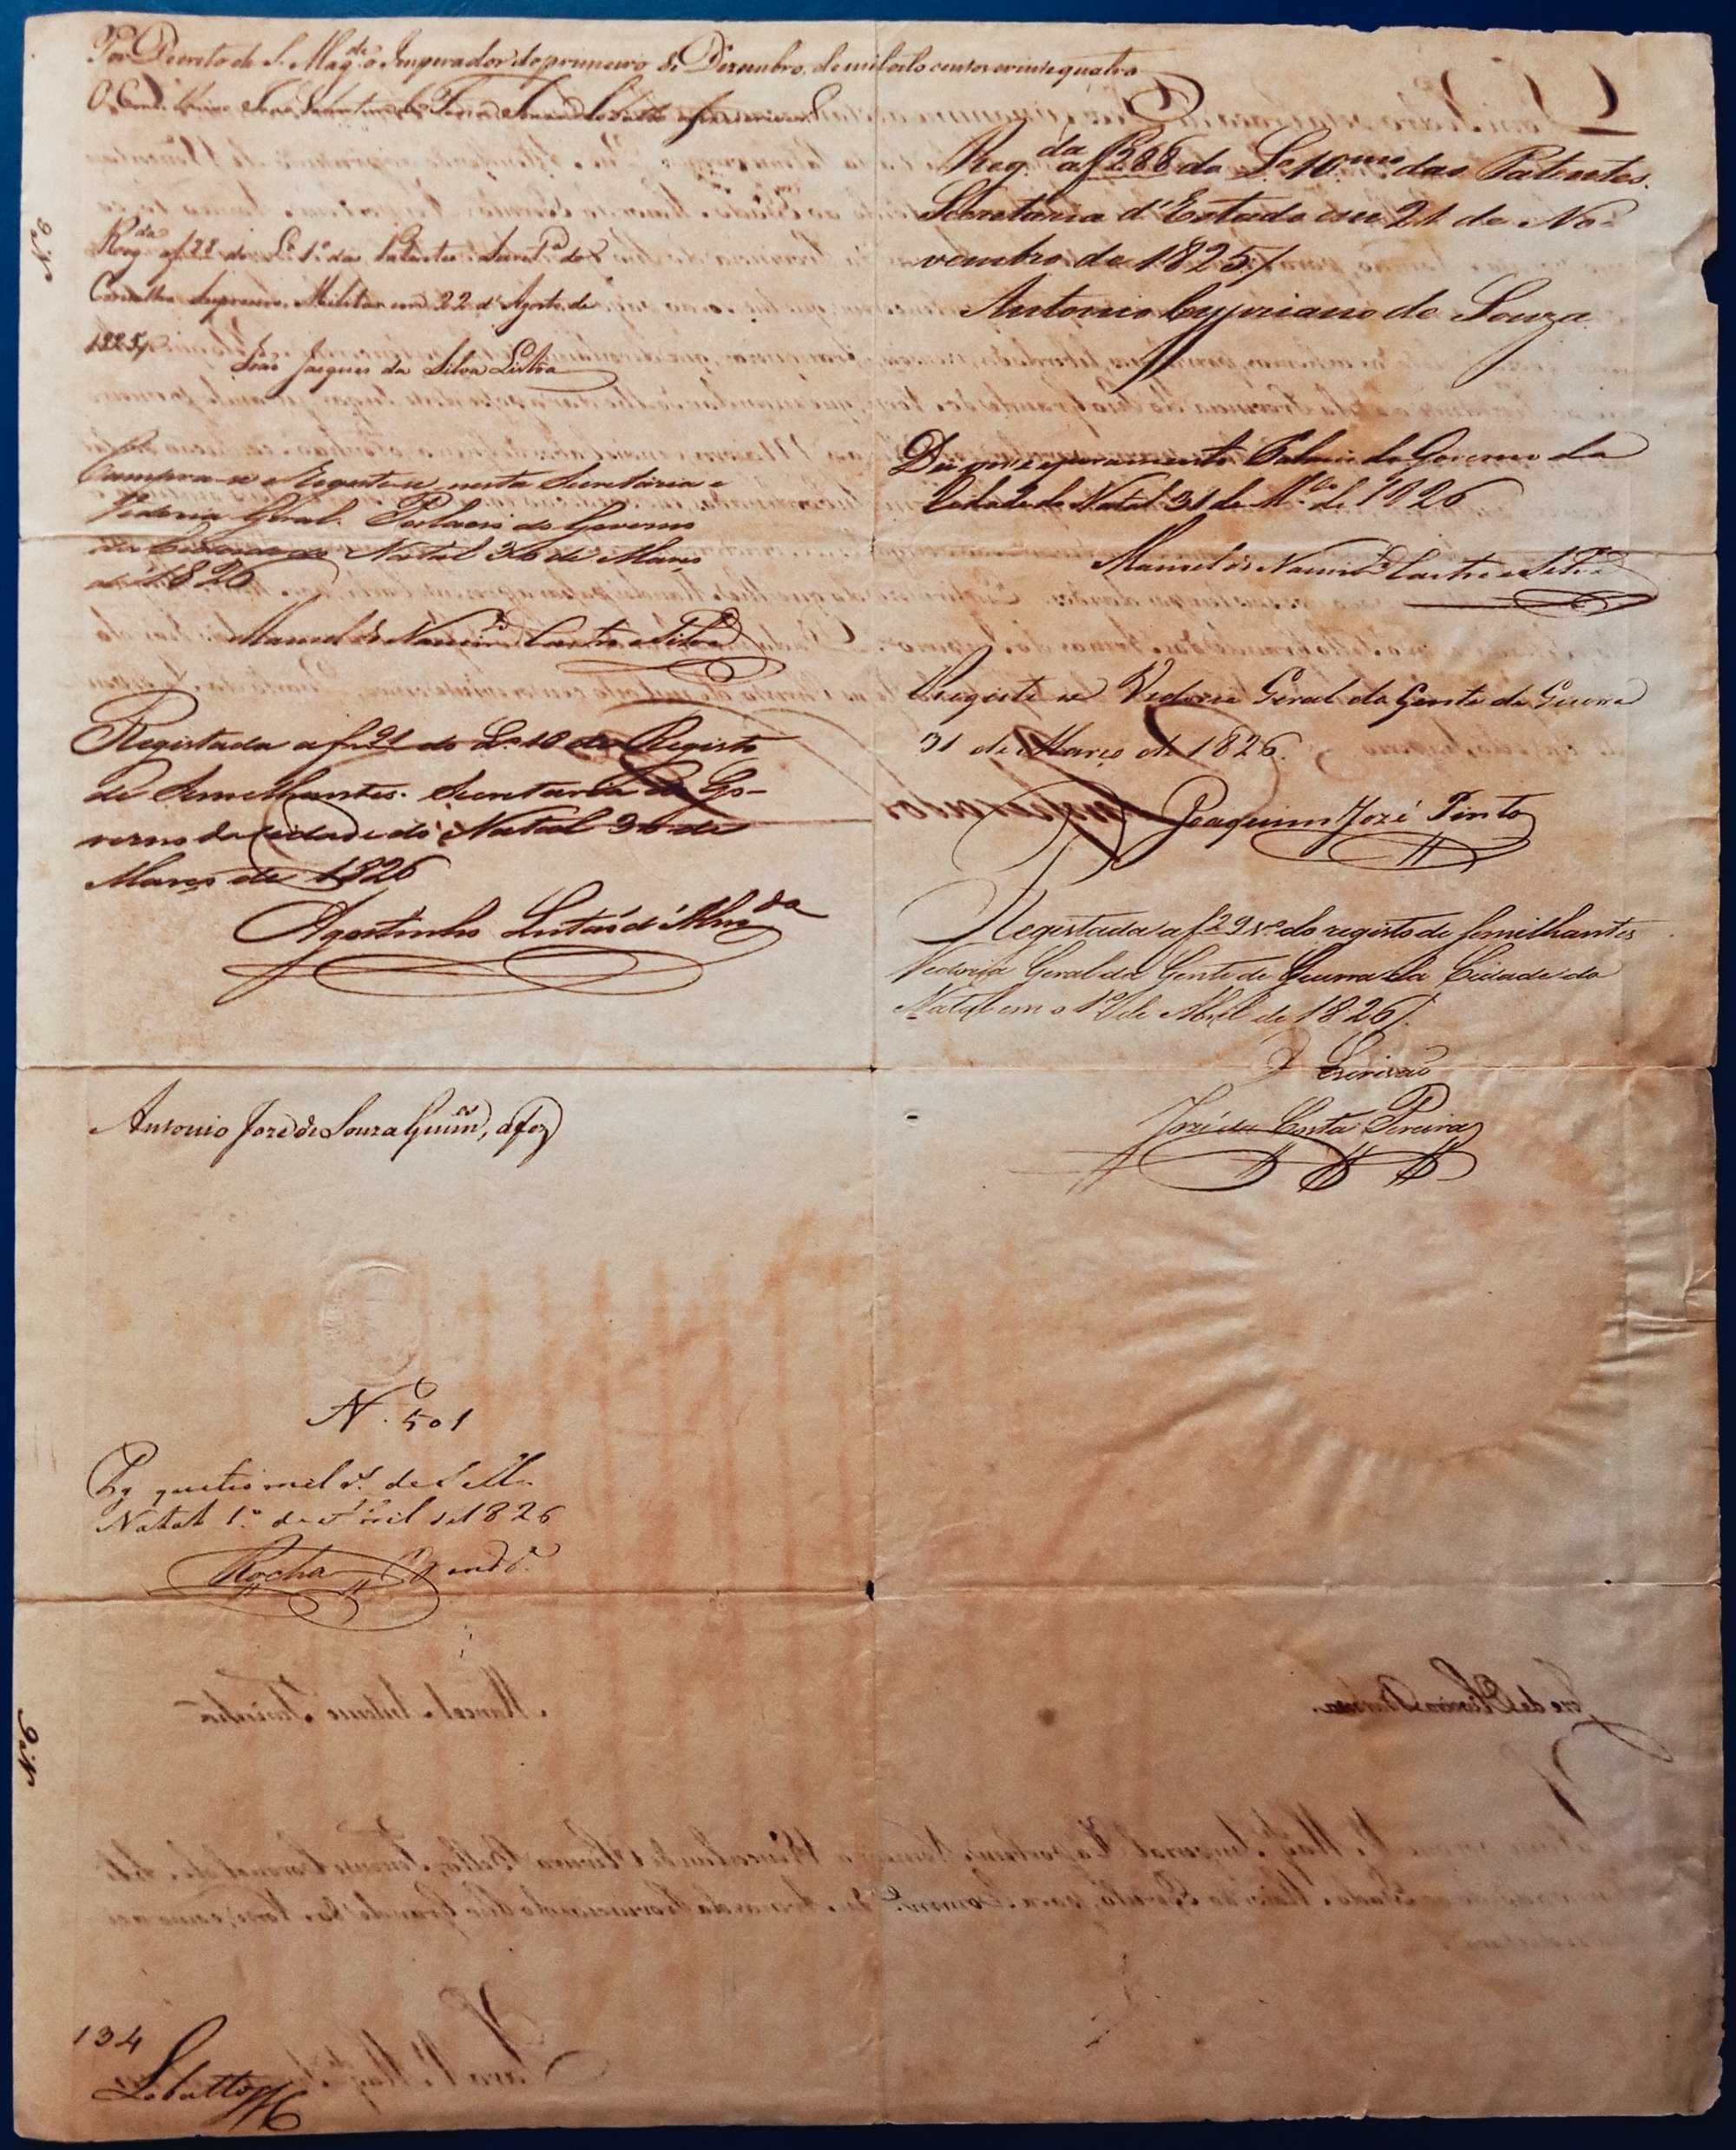 Por Decreto de S. Mag.de o Imperador do primeiro de Dezembro de mil oito centos e vinte quatro
Reg.da a f 28 do L.o 1.o das Patentes. Secret.a do
Conselho Supremo Militar em 22 d'Agosto de
1825/
João Jaques da Silva Lisboa
Cumpra-se e Registe-se nesta Secretaria e
Vedoria Geral. Palacio do Governo
da Cidade do Natal 30 de Março
de 1826
Manuel do Nascim.to Castro e Silva
Registada a f 21 do L.o 10 de Registo
de Semelhantes. Secretaria do Go-
verno da Cidade do Natal 30 de
Março de 1826
Agostinho Leitão d'Alm.da
Antonio Joze de Souza Guim.es, a fez
N.o 501
Pg quatro mil r.s de Sello
Natal 1.o de Abril de 1826
Rocha
134
Lobatto
Reg.da a f 288 do L.o 10.mo das Patentes.
Secretaria d'Estado em 21 de No-
vembro de 1825/
Antonio Cypriano de Souza
Deu posse e juramento. Palacio do Governo da
Cidade do Natal 31 de M.ço de 1826
Manuel do Nascim.to Castro e Silva
Registe se Vedoria Geral da Gente de Guerra
31 de Março de 1826.
Joaquim José Pinto
Registada a f 29 v.o do registo de semilhantes
Vedoria Geral da Gente de Guerra da Cidade do
Natal em o 1.o de Abril de 1826/.
O Escrivão
José da Costa Pereira